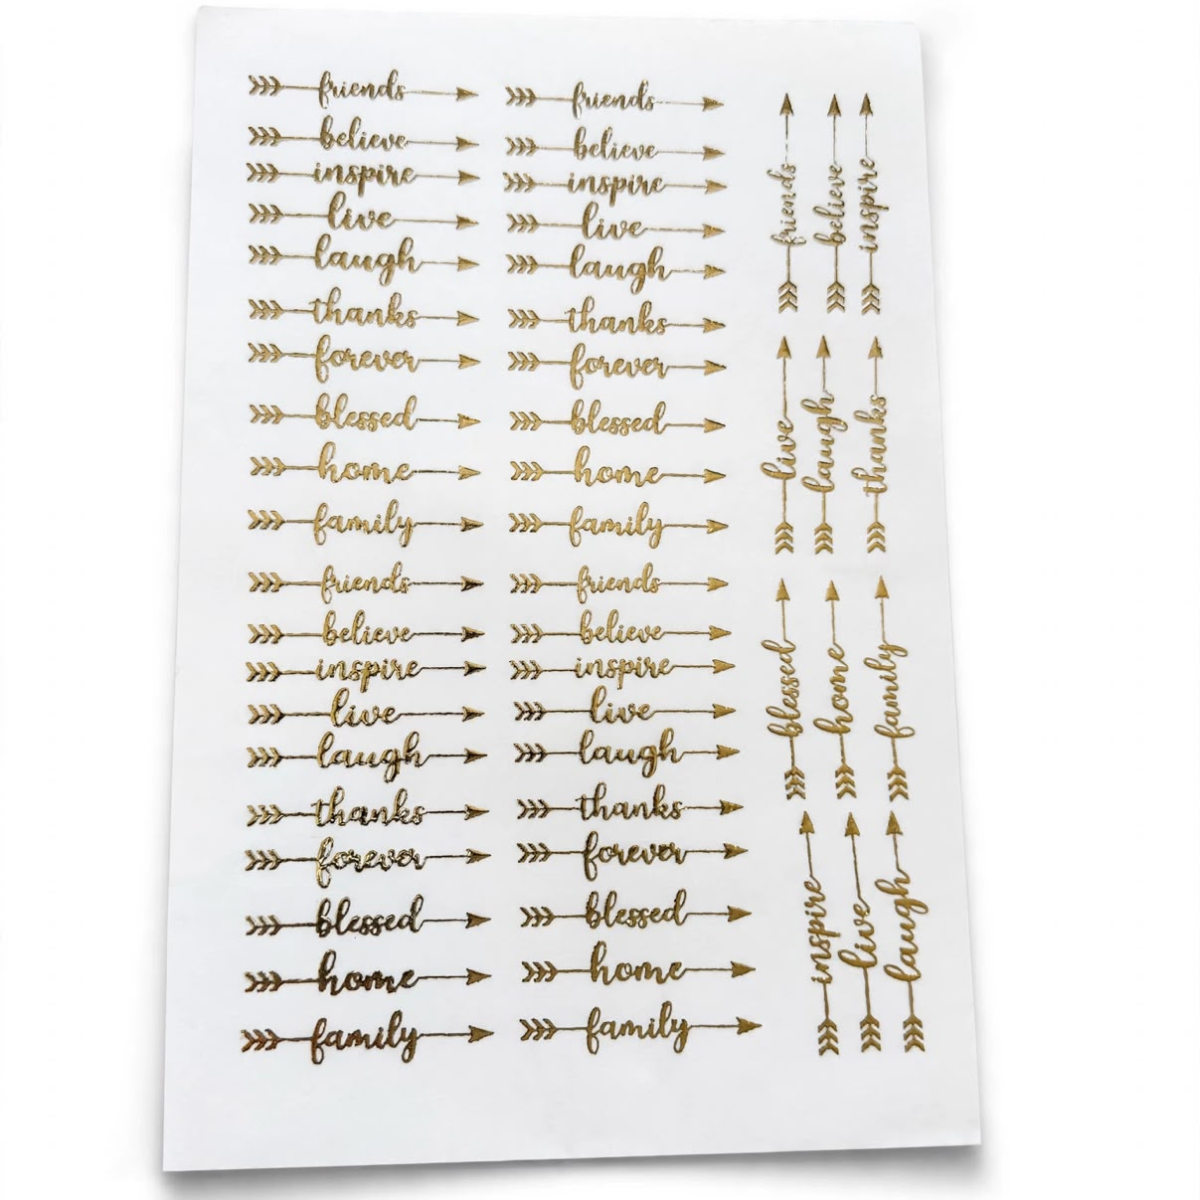 friends friends
believe believe
inspire inspire
live live
laugh laugh
thanks thanks
forever forever
blessed blessed
home home
family family
friends friends
believe believe
inspire inspire
live live
laugh laugh
thanks thanks
forever forever
blessed blessed
home home
family family
friends
believe
inspire
live
laugh
thanks
blessed
home
family
inspire
live
laugh